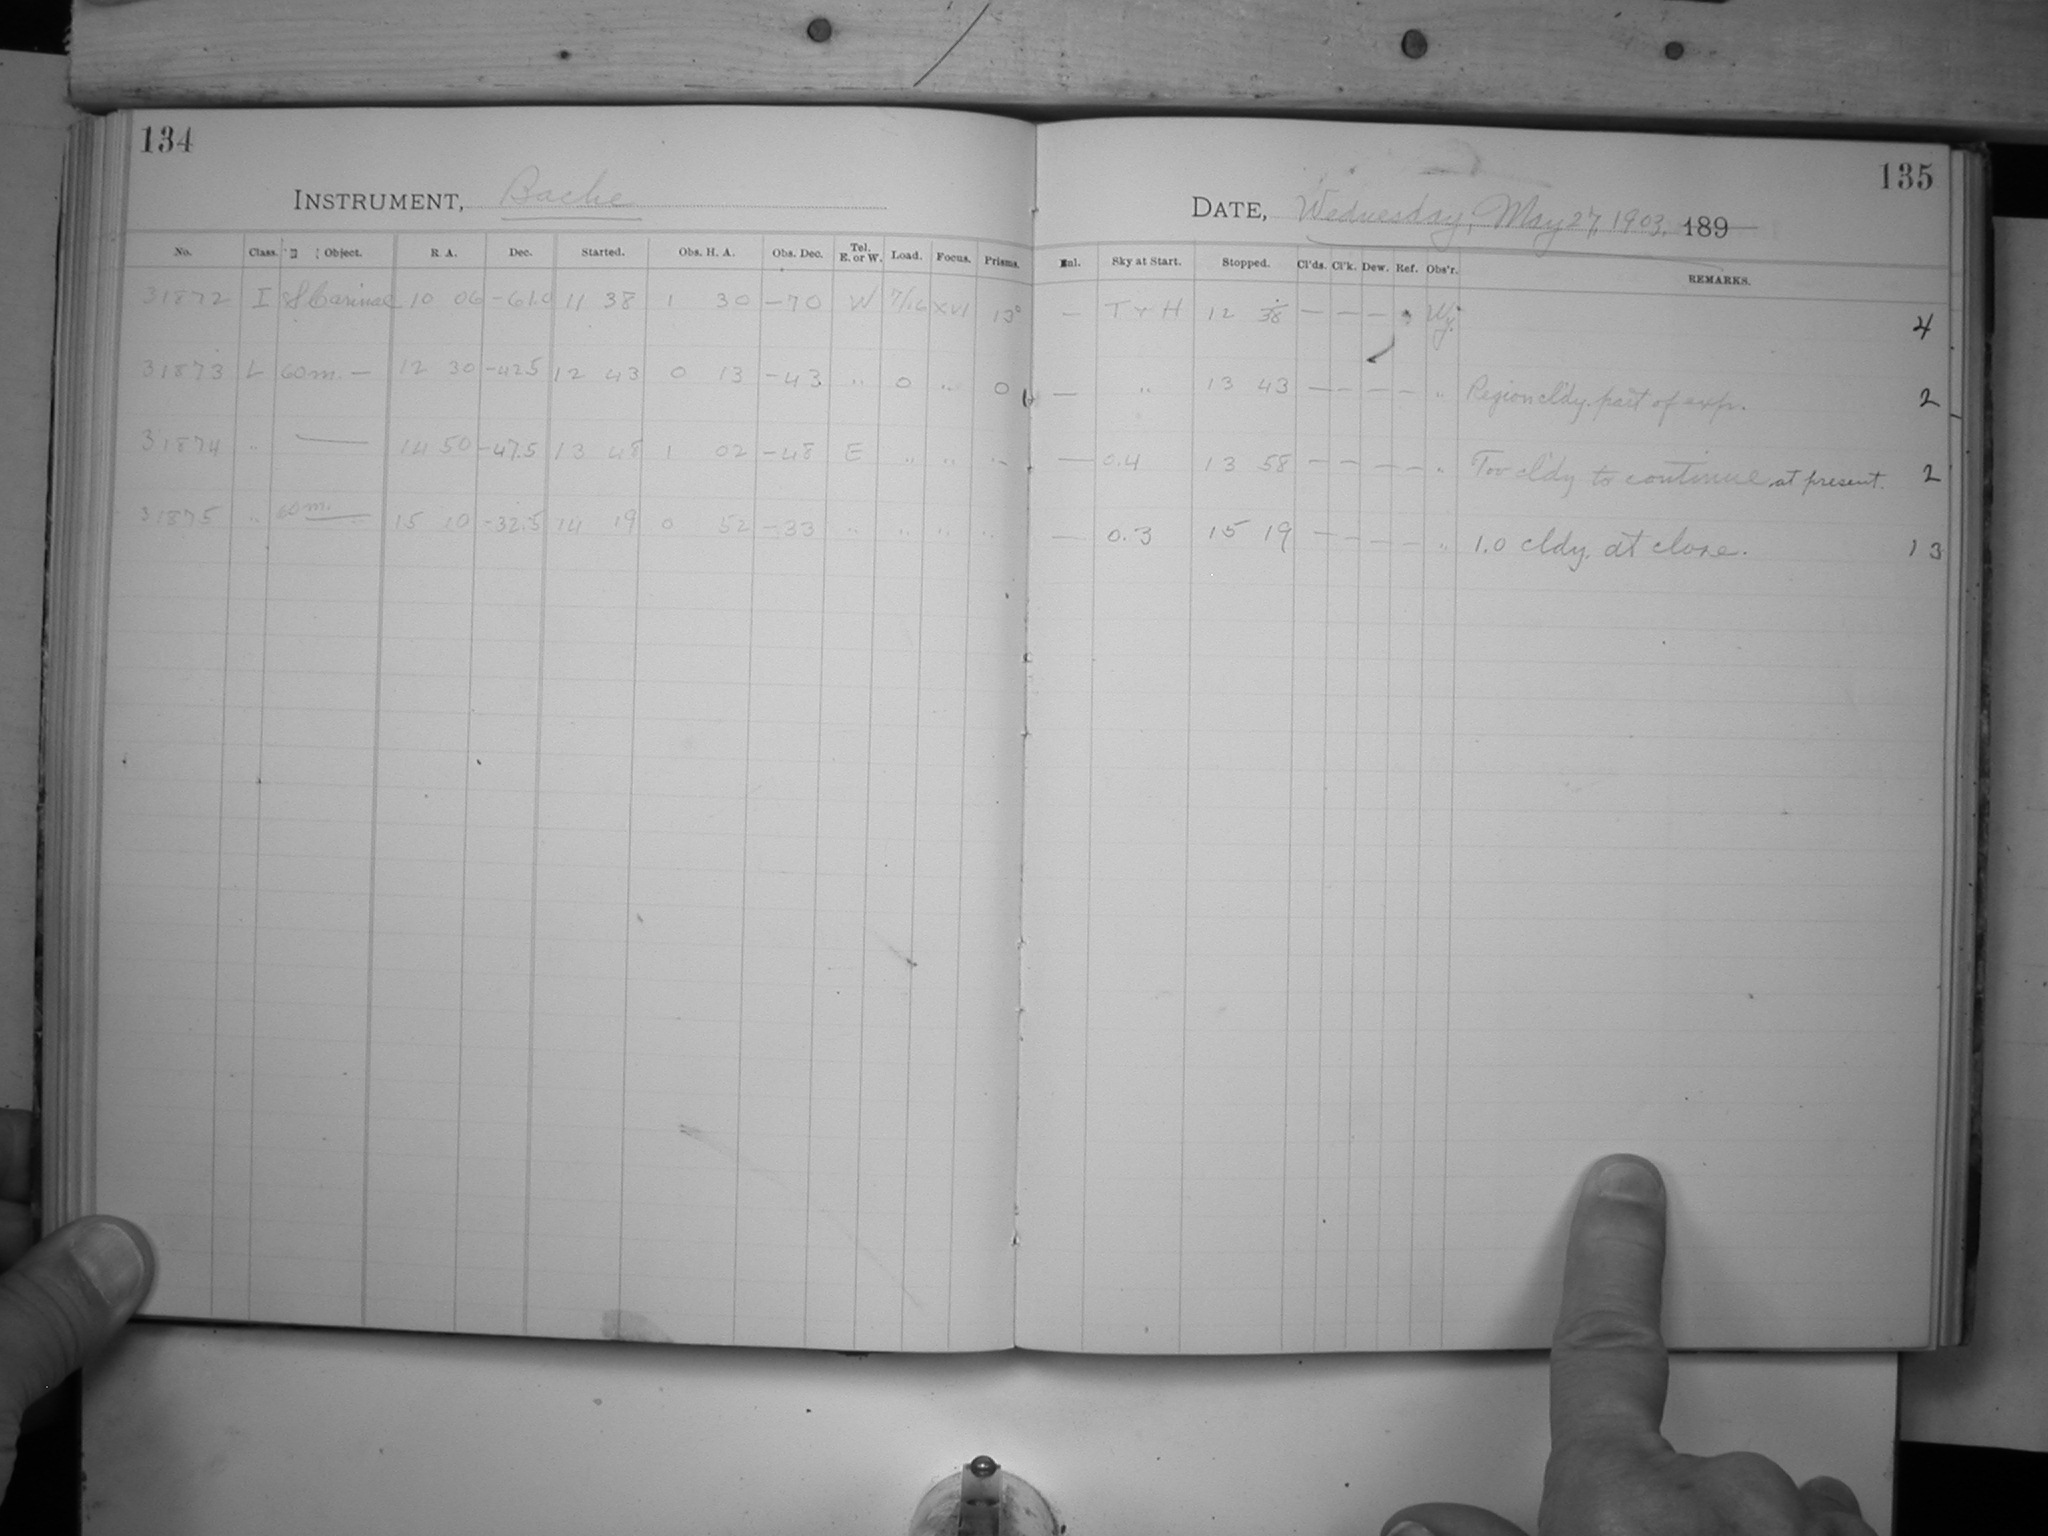 134
INSTRUMENT, Bache
No. Class. Object. R. A. Dec. Started. Obs. H. A. Obs. Dec. Tel. E. or W. Load. Focus. Prisms.
31872 I S Carinae 10 06 -61.0 11 38 1 30 -70 W 7/16 XVI 13°
31873 L 60m. — 12 30 -42.5 12 43 0 13 -43 " 0 " 0
31874 " — 14 50 -47.5 13 48 1 02 -48 E " " "
31875 " 60m. — 15 10 -32.5 14 19 0 52 -33 " " " "
135
DATE, Wednesday, May 27, 1903. 189
Sky at Start. Stopped. Cl'ds. Cl'k. Dew. Ref. Obs'r. REMARKS.
— T + H 12 38 — — — Wy. 4
— " 13 43 — — — — " Region cldy. part of exp. 2
— 0.4 13 58 — — — — " Too cldy to continue at present. 2
— 0.3 15 19 — — — — " 1.0 cldy. at close. 13